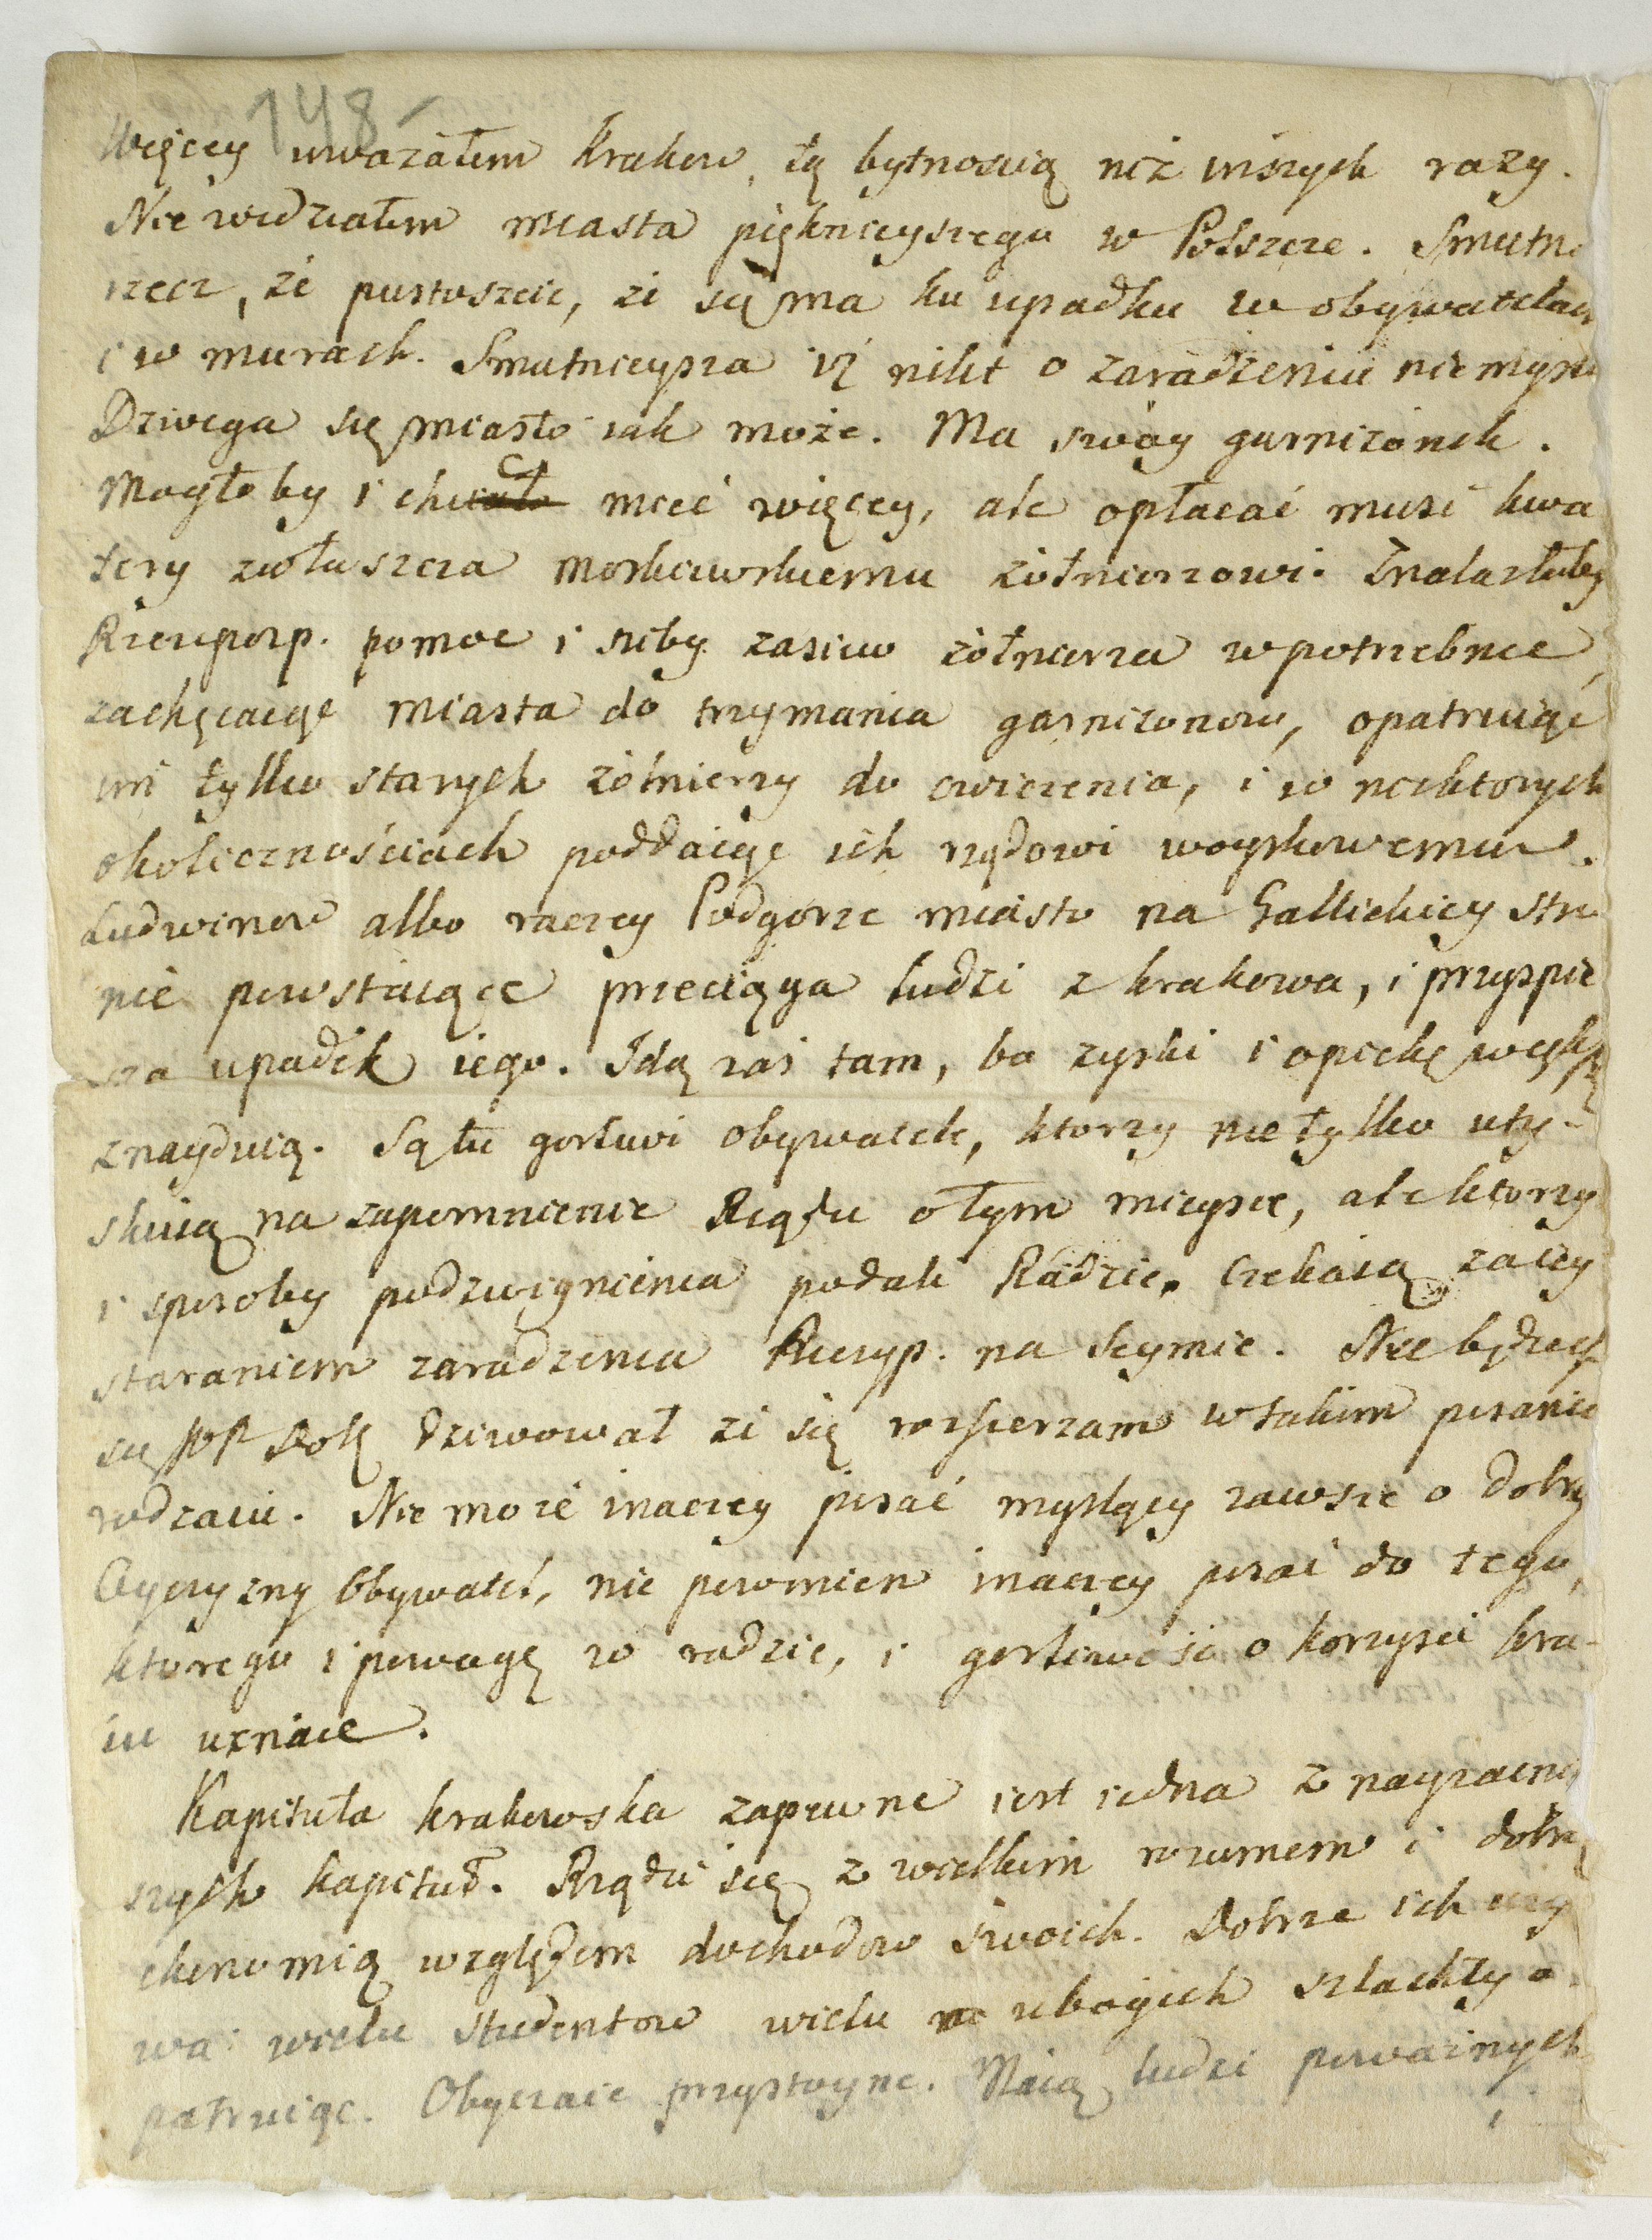 148
Więcey uwazałem Krakow, tą bytnoscią niż inszych razy.
Nie widziałem miasta pięknieyszego w Polszcze. Smutna
rzecz, że pustoszeie, że się ma ku upadku w obywatelach
i w murach. Smutnieysza iż nikt o zaradzeniu nie mysli
Dzwiga się miasto iak może. Ma swoy garnizonek.
Mogłoby i chc mieć więcey, ale opłacać musi kwa
tery zwłaszcza moskiewskiemu żołnierzowi. Znalazłaby
Rzeczposp. pomoc i niby zasiew żołnierza w potrzebie,
zachęcaiąc miasta do trzymania garnizonow, opatruiąc
im tylko starych żołnierzy do cwiczenia, i w niektorych
okolicznościach poddaiąc ich rządowi woyskowemu.
Ludwinow albo raczey Podgorze miasto na Gallickiey stro
nie powstaiące przeciąga ludzi z Krakowa, i przyspie
sza upadek iego. Idą zaś tam, bo zyski i opiekę większą
znayduią. Są tu gorliwi obywatele, ktorzy nie tylko uty-
skuią na zapomnienie Rządu o tym mieyscu, ale ktorzy
i sposoby podzwignienia podali Radzie. Czekaią za iey
staraniem zaradzenia Rzeczyp. na Seymie. Nie będziesz
się Dobr dziwował że się rozszerzam w takim pisania
rodzaiu. Nie może inaczey pisać myslący zawsze o dobru
Oyczyzny Obywatel, nie powinien inaczey pisać do tego,
ktorego i powagę w radzie, i gorliwość o korzysci kra-
iu uznaie.
Kapituła krakowska zapewne iest iedna z nayzacniey
szych kapituł. Rządzi się z wielkim rozumem i dobrą
ekonomią względem dochodow swoich. Dobrze ich uży
wa: wielu studentow wielu ubogich szlachty o-
patruiąc. Obyczaie przystoyne. Maią ludzi poważnych